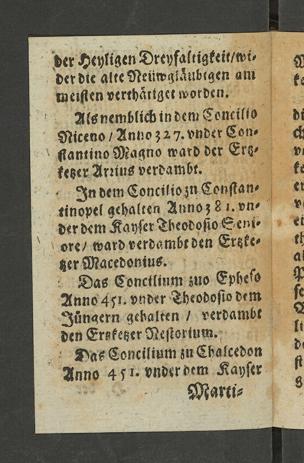 der Heyligen Dreyfaltigkeit/ wi-
der die alte Neüwgläubigen am
meisten verthätiget worden.
Als nemblich in dem Concilio
Niceno / Anno 327. vnder Con-
stantino Magno ward der Ertz-
ketzer Arius verdambt.
In dem Concilio zu Constan-
tinopel gehalten Anno 381. vn-
der dem Kayser Theodosio Seni-
ore/ ward verdambt den Ertzke-
tzer Macedonius.
Das Concilium zuo Epheso
Anno 451. vnder Theodosio dem
Jüngern gehalten / verdambt
den Ertzketzer Nestorium.
Das Concilium zu Chalcedon
Anno 451. vnder dem Kayser
Marti-